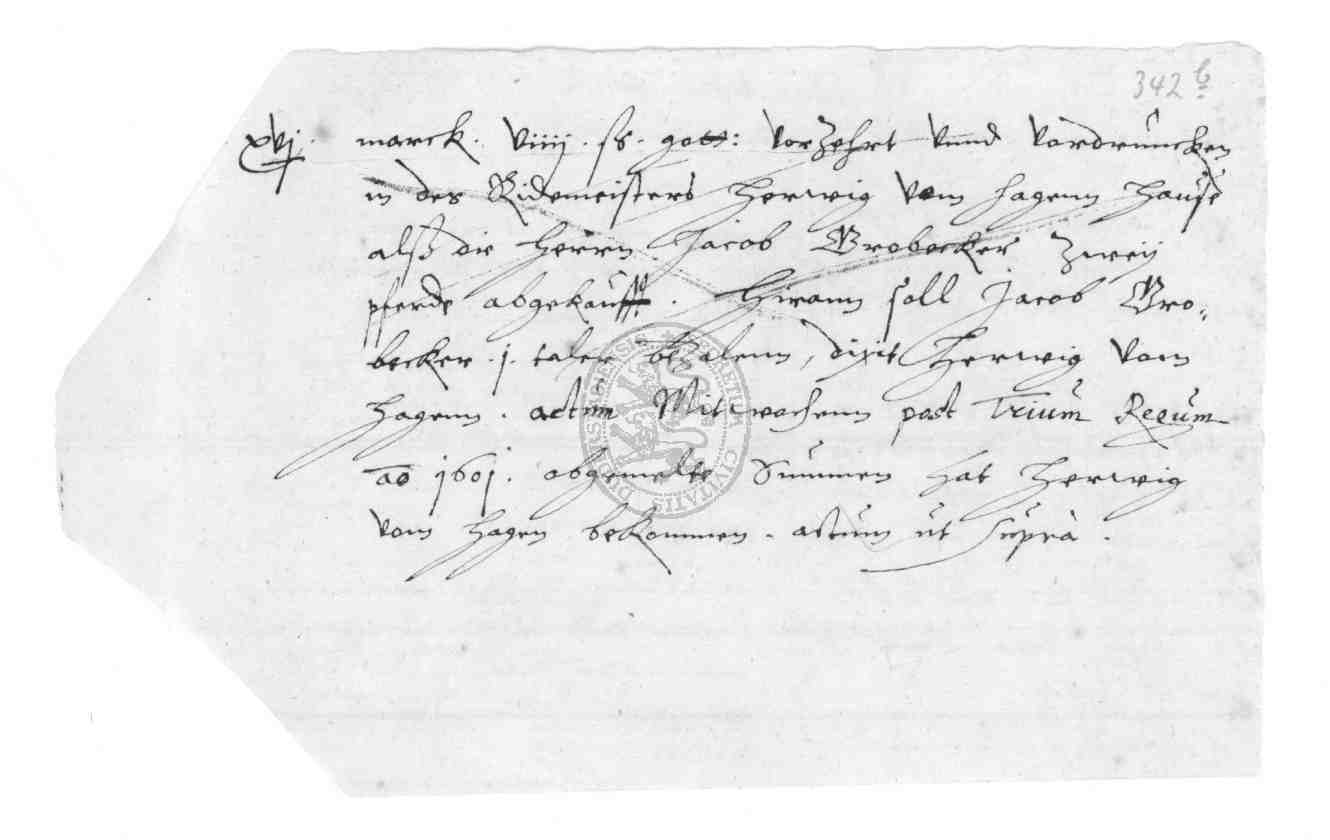 342 b
xvj. marck. viiij. ß. gott: vorzehrt vnnd vordruncken
in des Ridemeisters Herwig vom Hagenn Hauße
alß die herrn Jacob Grobecker zweÿ
pferde abgekaufft. Hirann soll Jacob Gro,
becker .j. taler bezalenn, dixit Herwig vom
Hagenn. actum Mitwochenn post Trium Regum
ao 1601. obgemelte Summen hat Herwig
vom Hagen bekommen. actum ut supra.
CIVITATIS